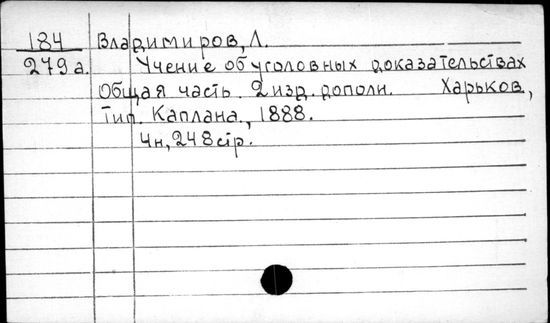 184 Владимиров, Л.
279а. Учение об уголовных доказательствах
Общая часть. 2 изд. дополн. Харьков,
тип. Каплана., 1888.
4н, 248 стр.